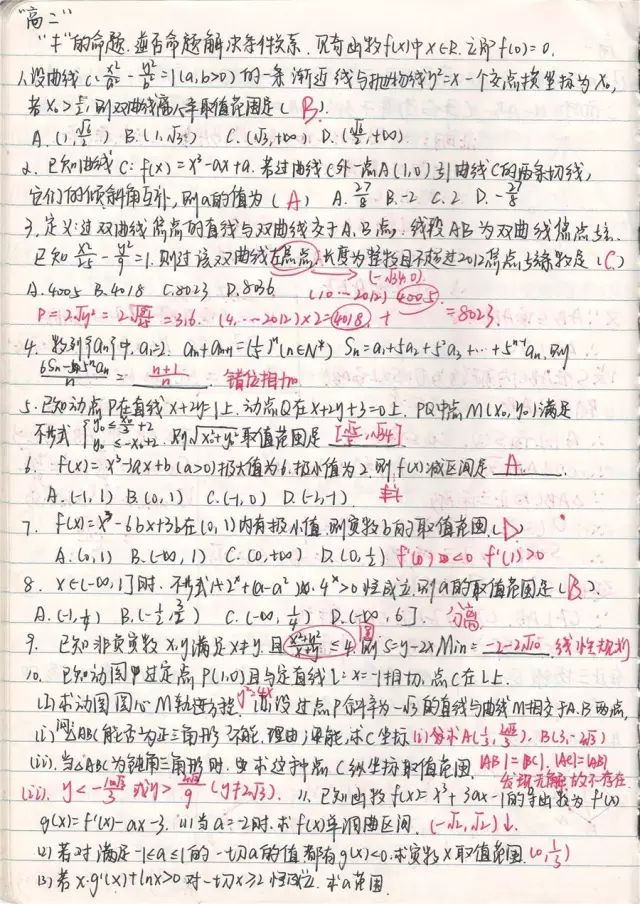 "高二"
"非"的命题.逆否命题解决条件关系. 见奇函数f(x)中x∈R.立即f(0)=0.
1.设曲线C:x²/a²-y²/b²=1(a,b>0)的一条渐近线与抛物线y²=x一个交点横坐标为x₀,
若x₀>½,则双曲线离心率取值范围是(B).
A.(1,√6/2) B.(1,√3) C.(√3,+∞) D.(√6/2,+∞)
2.已知曲线C:f(x)=x³-ax+a.若过曲线C外一点A(1,0)引曲线C的两条切线,
它们的倾斜角互补,则a的值为(A) A.27/8 B.-2 C.2 D.-27/8
3.定义:过双曲线焦点的直线与双曲线交于A.B点.线段AB为双曲线焦点弦.
已知x²/25-y²/9=1.则过该双曲线左焦点,长度为整数且不超过2012焦点弦条数是(C)
(-√34,0)
A.4005 B.4018 C.8023 D.8036 (10…2012) 4005
=3.6. (4,…2012)×2=4018 + =8023.
4.数列{an}中,a₁=2. an+an+1=(1/5)ⁿ(n∈N*) Sn=a₁+5a₂+5²a₃+…+5ⁿ⁻¹an.则
= (n+1)/n 错位相加
5.已知动点P在直线x+2y=1上.动点Q在x+2y+3=0上. PQ中点M(x₀,y₀)满足
不等式 y₀≤ +2 y₀≤-x₀+2. 则√x₀²+y₀²取值范围是 [√5/5,√34]
6. f(x)=x³-3ax+b(a>0)极大值为6.极小值为2.则f(x)减区间是 A.
A.(-1,1) B.(0,1) C.(-1,0) D.(-2,-1)
7. f(x)=x³-6bx+3b在(0,1)内有极小值.则实数b的取值范围(D)
A.(0,1) B.(-∞,1) C.(0,+∞) D.(0,½) f'(0)<0 f'(1)>0
8. x∈(-∞,1]时.不等式1+2ˣ+(a-a²)·4ˣ>0恒成立.则a的取值范围是(B).
A.(-1,¼) B.(-½,3/2) C.(-∞,¼) D.(-∞,6]. 分离
9. 已知非负实数x,y满足x≠y.且(x²+y²)/(x+y)≤4.则S=y-2x Min= -2-2√10. 线性规划
圆
10. 已知动圆过定点P(1,0)且与定直线L:x=-1相切.点C在L上.
(1)求动圆圆心M轨迹方程. y²=4x (2)设过点P斜率为-√3的直线与曲线M相交于A.B两点,
(i)问△ABC能否为正三角形?不能,理由;若能,求C坐标 (i)分求A(⅓,2√3/3).B(3,-2√3)
(ii).当△ABC为钝角三角形时.求这种点C纵坐标取值范围. |AB|=|BC|.|AC|=|AB|
发现无解故不存在.
(ii). y<-10√3/3 或y>2√3/9 (y≠2√3). 11.已知函数f(x)=x³+3ax-1的导函数为f'(x)
g(x)=f'(x)-ax-3. (1)当a=-2时.求f(x)单调区间. (-√2,√2)↓.
(2)若对满足-1≤a≤1的一切a的值都有g(x)<0.求实数x取值范围.(0,⅓)
(3)若x·g'(x)+lnx>0对一切x≥2恒成立.求a范围.